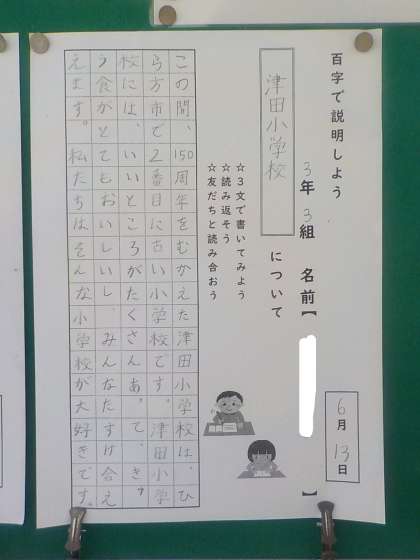 百字で説明しよう
6月13日
3年3組 名前【 】
津田小学校 について
☆３文で書いてみよう
☆読み返そう
☆友だちと読み合おう
この間、150周年をむかえた津田小学校は、ひ
ら方市で2番目に古い小学校です。津田小学
校には、いいところがたくさんあって、き
う食がとてもおいしいし、みんなたすけ合え
えます。私たちはそんな小学校が大好きです。